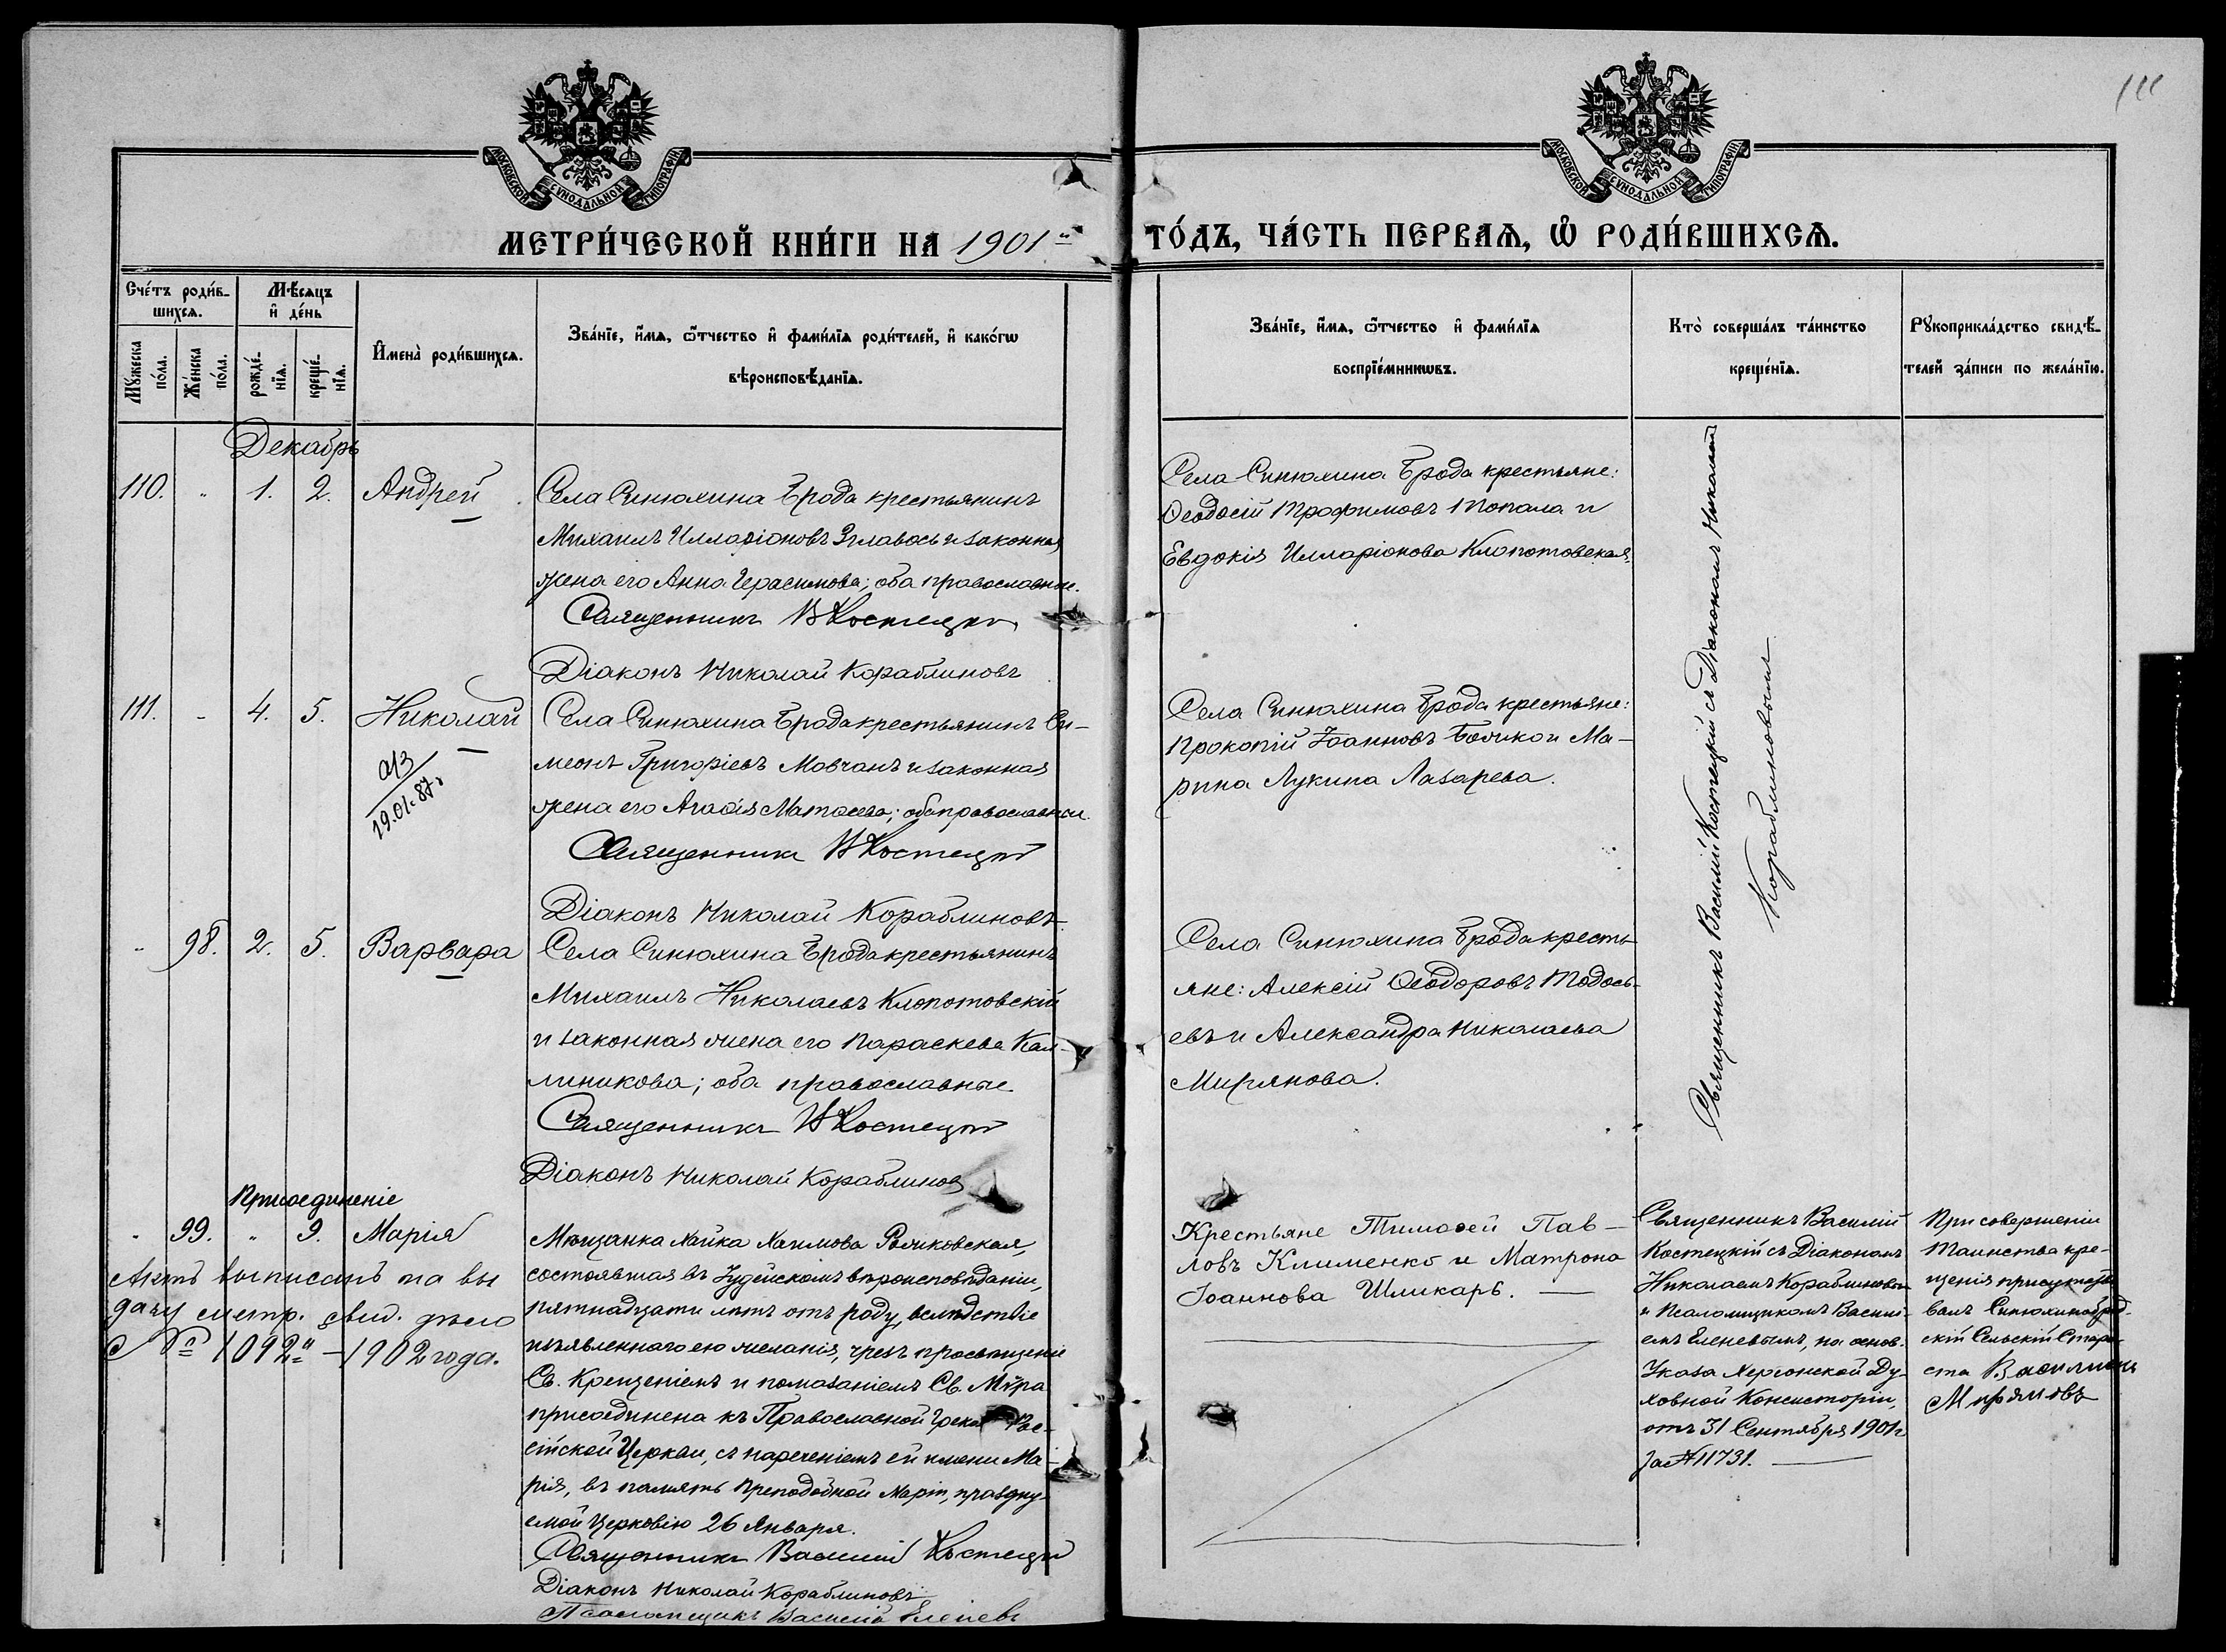 111
МОСКОВСКОЙ СѴНОДАЛЬНОЙ ТИПОГРАФІИ
МОСКОВСКОЙ СѴНОДАЛЬНОЙ ТИПОГРАФІИ
МЕТРИ́ЧЕСКОЙ КНИ́ГИ НА 1901й ГО́ДЪ, ЧА́СТЬ ПЕРВАѦ, Ѡ РОДИ́ВШИХСѦ.
Сче́тъ роди́в-
шихсѧ.
Мꙋжеска по́ла.
Же́нска по́ла.
Мѣ́сѧцъ
и҆ де́нь
рожде́-
нїѧ.
креще́-
нїѧ.
И҆мена̀ роди́вшихсѧ.
Зва́нїе, и҆́мѧ, ѻ҆́тчество и҆ фами́лїѧ роди́телей, и҆ како́гѡ
вѣроисповѣ́данїѧ.
Зва́нїе, и҆́мѧ, ѻ҆́тчество и҆ фами́лїѧ
воспрїе́мникѡвъ.
Кто̀ соверша́лъ та́инство
креще́нїѧ.
Рꙋкоприкла́дство свидѣ́-
телей за́писи по жела́нїю.
Декабрь
110. " 1. 2. Андрей
Села Синюхина Брода крестьянинъ
Михаилъ Илларіоновъ и законная
жена его Анна Герасимова; оба православные.
Священникъ В Костецкій
Діаконъ Николай Кораблиновъ
Села Синюхина Брода крестьяне:
Ѳеодосій Трофимовъ Топала и
Евдокія Илларіонова Клопотовская.
111. - 4. 5. Николай
19.01.87г.
Села Синюхина Брода крестьянинъ Си-
меонъ Григоріевъ Мовчанъ и законная
жена его Агаѳія Матѳеева; оба православные.
Священникъ В Костецкій
Діаконъ Николай Кораблиновъ.
Села Синюхина Брода крестьяне:
Прокопій Іоанновъ Бойко и Ма-
рина Лукина Лазарева.
" 98. 2. 5. Варвара
Села Синюхина Брода крестьянинъ
Михаилъ Николаевъ Клопотовскій
и законная жена его Параскева Кал-
линикова; оба православные.
Священникъ В Костецкій
Діаконъ Николай Кораблиновъ
Села Синюхина Брода кресть-
яне: Алексій Ѳеодоровъ Тодось-
евъ и Александра Николаева
Мирянова.
Священникъ Василій Костецкій съ Діакономъ Николаемъ
Кораблиновымъ
Присоединеніе
" 99. " 9. Марія
Актъ выписанъ на вы
дачу метр. свид. дѣло
№ 1092й - 1902 года.
Мѣщанка Хайка Хаимова
состоявшая въ Іудейскомъ вѣроисповѣданіи,
пятнадцати лѣтъ отъ роду, вслѣдствіе
изъявленнаго ею желанія, чрезъ просвѣщеніе
Св. Крещеніемъ и помазаніемъ Св. Мѵра
присоединена къ Православной Греко-Рос-
сійской Церкви, съ нареченіемъ ей имени Ма-
рія, въ память Преподобной Маріи, праздну-
емой Церковію 26 Января.
Священникъ Василій Костецкій
Діаконъ Николай Кораблиновъ
Псаломщикъ Василій Еленевъ
Крестьяне Тимоѳей Пав-
ловъ Клименко и Матрона
Іоаннова Шликарь.
Священникъ Василій
Костецкій съ Діакономъ
Николаемъ Кораблиновымъ
и Псаломщикомъ Васили-
емъ Еленевымъ, на основ.
Указа Херсонской Ду-
ховной Консисторіи,
отъ 31 Сентября 1901г
за № 11731.
При совершеніи
Таинства кре-
щенія присутство-
валъ Синюхиноброд-
скій Сельскій Старо-
ста
Миряновъ